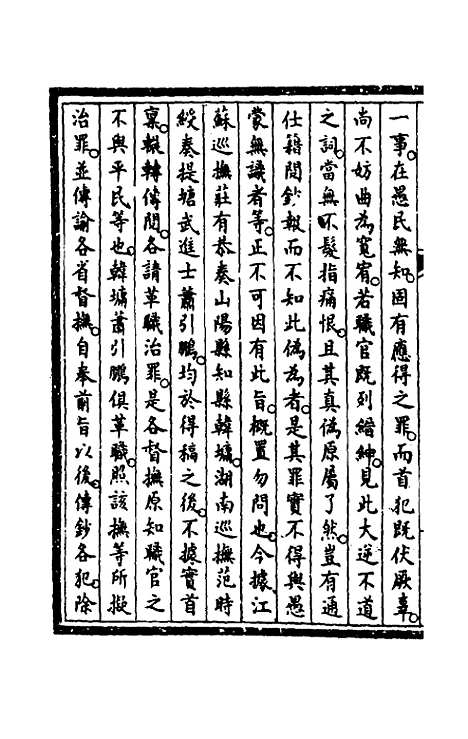 一事。在愚民無知。固有應得之罪。而首犯既伏厥辜。
尚不妨曲為寬宥。若職官既列縉紳。見此大逆不道
之詞。當無不髮指痛恨。且其真偽原屬了然。豈有通
仕籍閱鈔報而不知此偽為者。是其罪實不得與愚
蒙無識者等。正不可因有此旨。概置勿問也。今據江
蘇巡撫莊有恭奏山陽縣知縣韓墉。湖南巡撫范時
綬奏提塘武進士蕭引鵬。均於得稿之後。不據實首
稟。輾轉傳閱。各請革職治罪。是各督撫原知職官之
不與平民等也。韓墉蕭引鵬俱革職。照該撫等所擬
治罪。並傳諭各省督撫。自奉前旨以後。傳鈔各犯。除